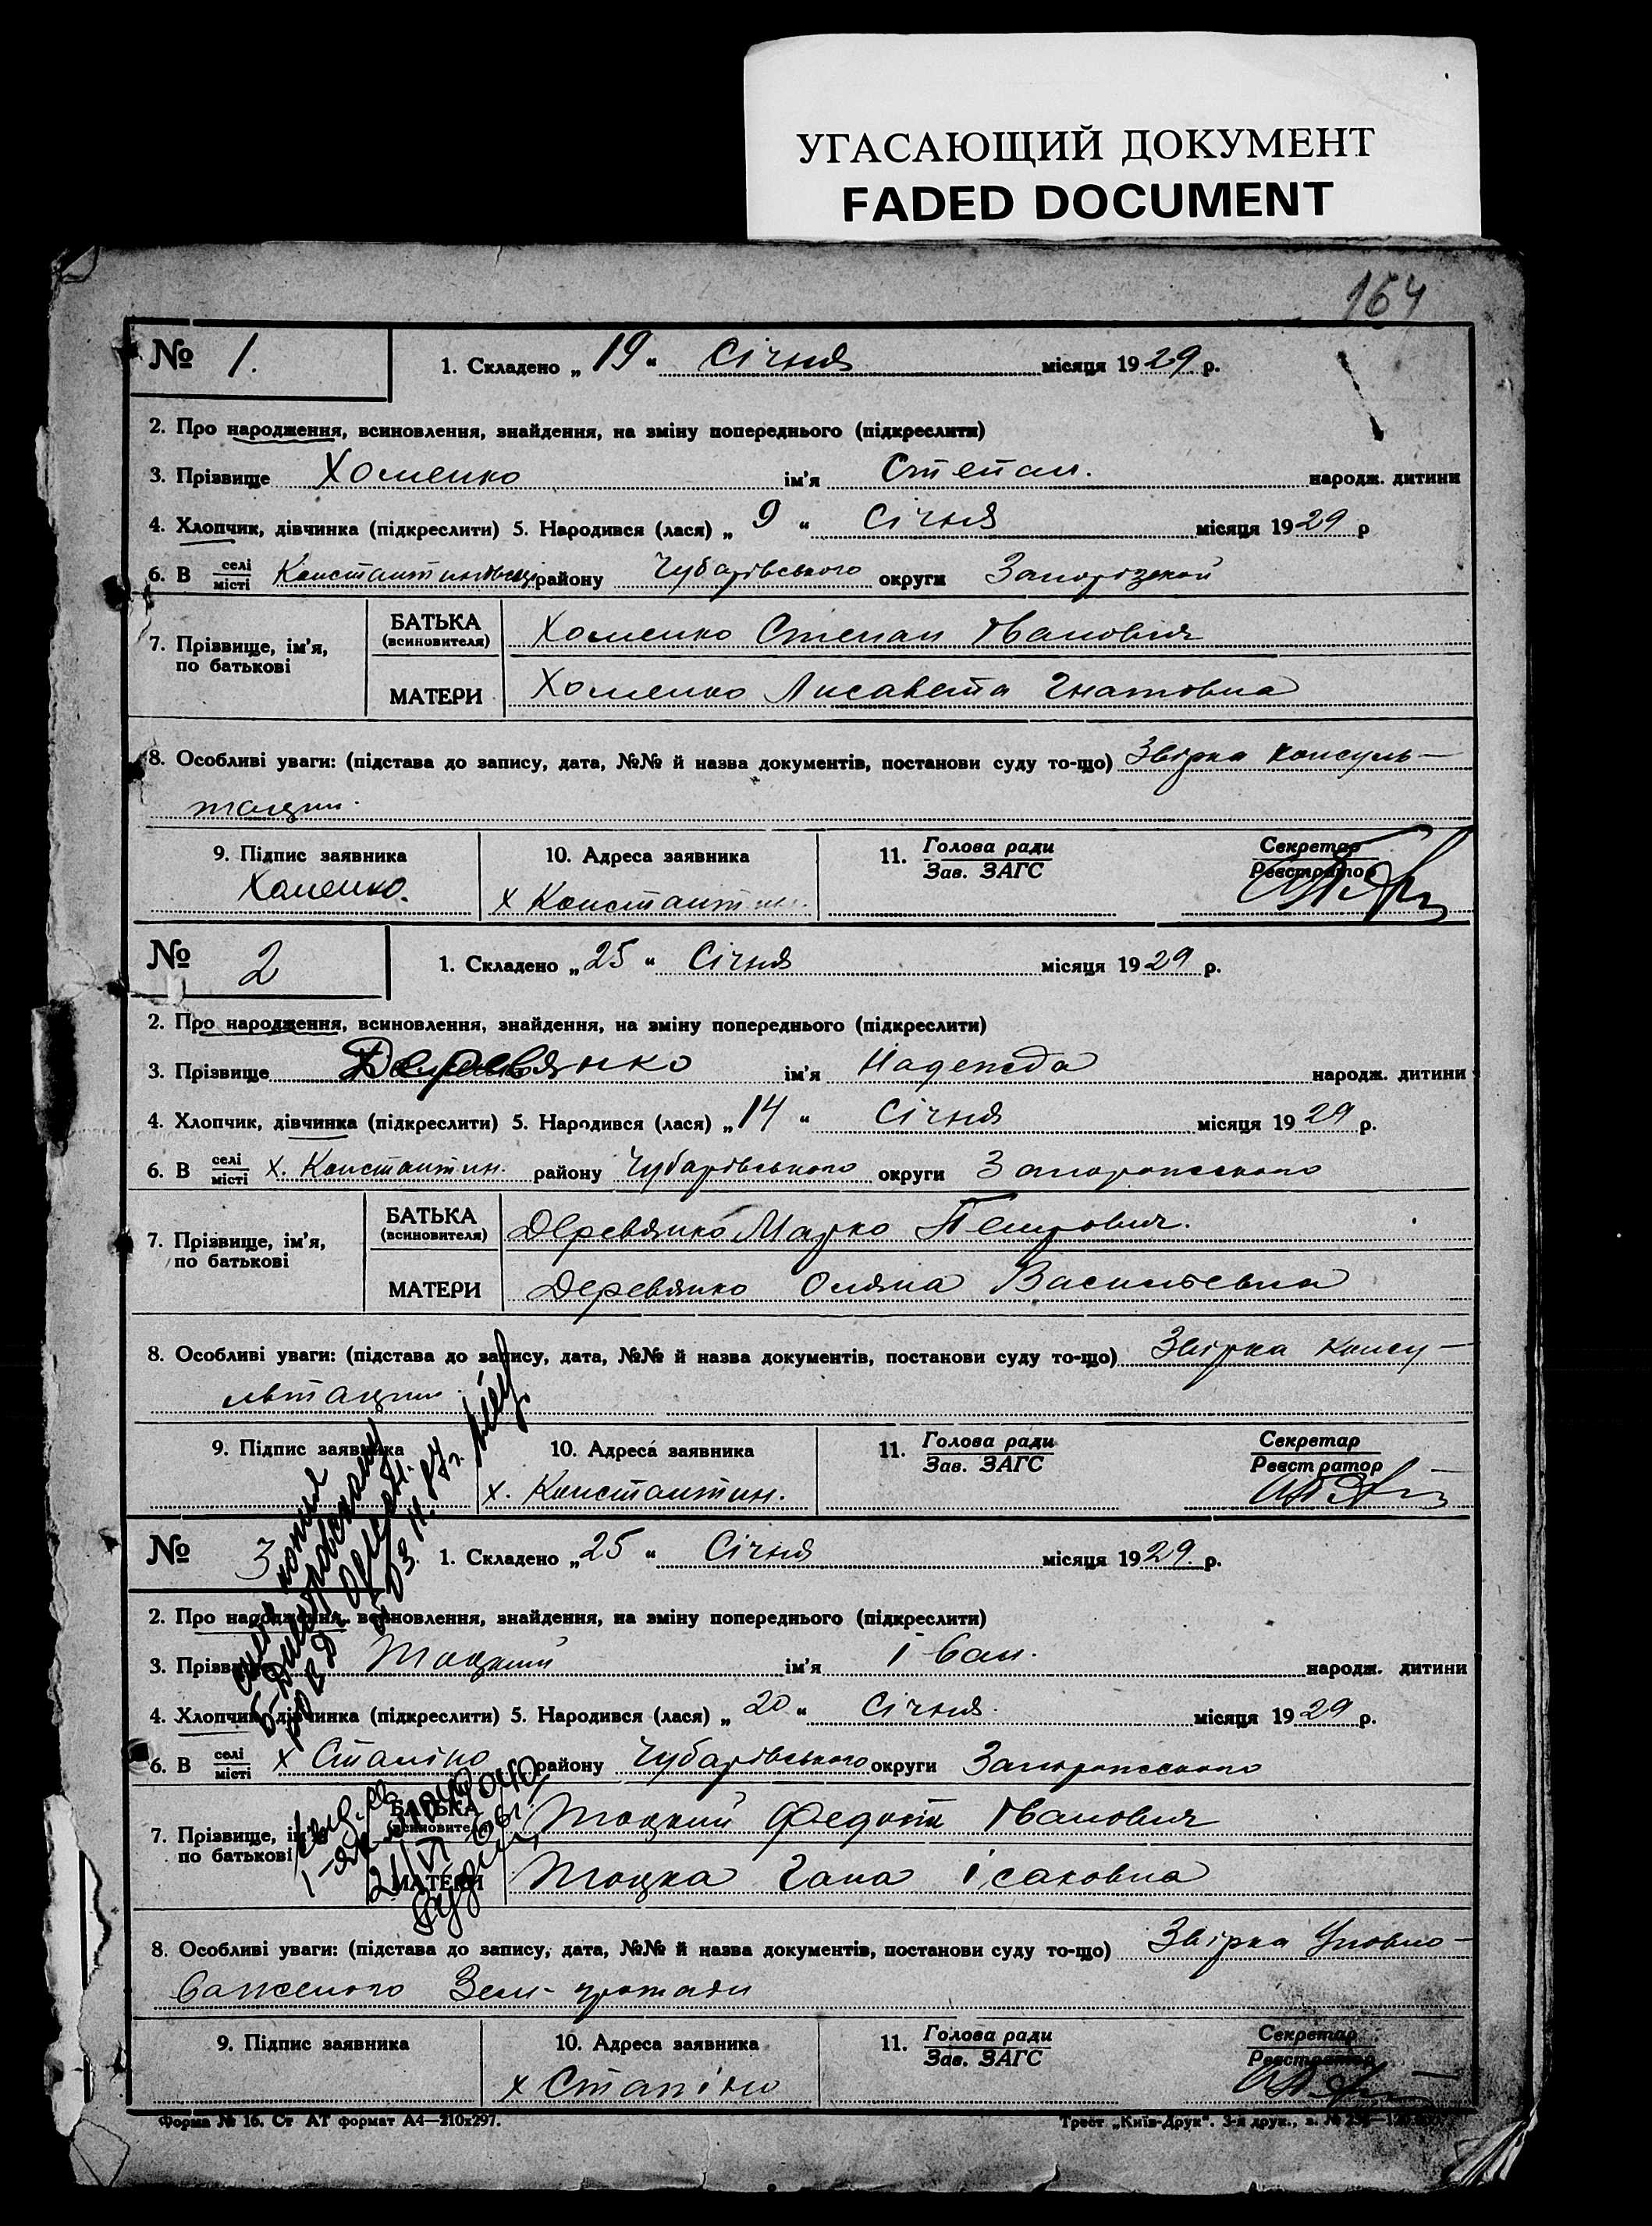 УГАСАЮЩИЙ ДОКУМЕНТ
FADED DOCUMENT
164
№ 1. 1. Складено „19“ Січня місяця 1929 р.
2. Про народження, всиновлення, знайдення, на зміну попереднього (підкреслити)
3. Прізвище Хоменко ім'я Степан. народж. дитини
4. Хлопчик, дівчинка (підкреслити) 5. Народився (лася) „9“ Січня місяця 1929 р
6. В селі місті району Чубарівського округи Запорізской
7. Прізвище, ім'я, по батькові
БАТЬКА (всиновителя) Хоменко Степан Іванович
МАТЕРИ Хоменко Лисавета Гнатовна
8. Особливі уваги: (підстава до запису, дата, №№ й назва документів, постанови суду то-що) Звірка консуль-
тации.
9. Підпис заявника 10. Адреса заявника 11. Голова ради Зав. ЗАГС Секретар Реєстратор
Хоменко. х Константин.
№ 2 1. Складено „25“ Січня місяця 1929 р.
2. Про народження, всиновлення, знайдення, на зміну попереднього (підкреслити)
3. Прізвище Деревянко ім'я Надежда народж. дитини
4. Хлопчик, дівчинка (підкреслити) 5. Народився (лася) „14“ Січня місяця 1929 р.
6. В селі місті х. Константин. району Чубарівського округи Запорожского
7. Прізвище, ім'я, по батькові
БАТЬКА (всиновителя) Деревянко Марко Петрович.
МАТЕРИ Деревянко Оляна Васильевна
8. Особливі уваги: (підстава до запису, дата, №№ й назва документів, постанови суду то-що) Звірка консу-
льтации
9. Підпис заявника 10. Адреса заявника 11. Голова ради Зав. ЗАГС Секретар Реєстратор
х. Константин.
№ 3 1. Складено „25“ Січня місяця 1929 р.
2. Про народження, всиновлення, знайдення, на зміну попереднього (підкреслити)
3. Прізвище Тоцкий ім'я Іван. народж. дитини
4. Хлопчик, дівчинка (підкреслити) 5. Народився (лася) „20“ Січня місяця 1929 р.
6. В селі місті х Сталіно району Чубарівського округи Запорожского
7. Прізвище, ім'я, по батькові
БАТЬКА (всиновителя) Тоцкий Федот Іванович
МАТЕРИ Тоцка Гана Ісаковна
8. Особливі уваги: (підстава до запису, дата, №№ й назва документів, постанови суду то-що) Звірка Уповно-
важеного Зем- громади
9. Підпис заявника 10. Адреса заявника 11. Голова ради Зав. ЗАГС Секретар Реєстратор
х Сталіно
Форма № 16. Ст АТ формат А4—210х297. Трест „Київ-Друк“. 3-я друк., з. №